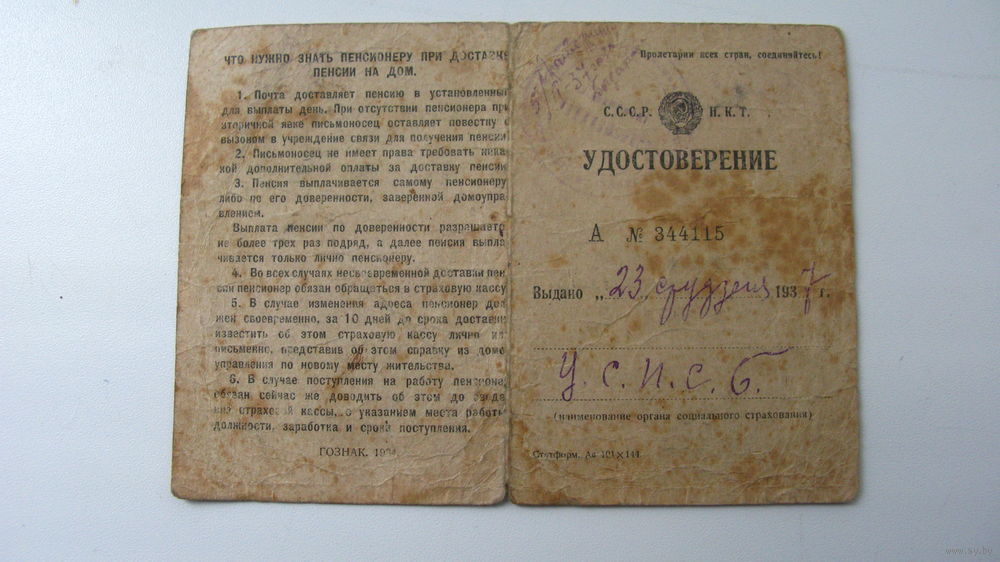 ЧТО НУЖНО ЗНАТЬ ПЕНСИОНЕРУ ПРИ ДОСТАВКЕ
ПЕНСИИ НА ДОМ.
1. Почта доставляет пенсию в установленны
для выплаты день. При отсутствии пенсионера при
вторичной явке письмоносец оставляет повестку с
вызовом в учреждение связи для получения пенсии
2. Письмоносец не имеет права требовать ника
кой дополнительной оплаты за доставку пенсии
3. Пенсия выплачивается самому пенсионеру
либо по его доверенности, заверенной домоупра
влением.
Выплата пенсии по доверенности разрешаетс
не более трех раз подряд, а далее пенсия выпла
чивается только лично пенсионеру.
4. Во всех случаях несвоевременной доставки пен
сии пенсионер обязан обращаться в страховую кассу
5. В случае изменения адреса пенсионер дол
жен своевременно, за 10 дней до срока доставки
известить об этом страховую кассу лично или
письменно, представив об этом справку из домо
управления по новому месту жительства.
6. В случае поступления на работу пенсионер
обязан сейчас же доводить об этом до сведе
ния страховой кассы, с указанием места работы
должности, заработка и срока поступления.
ГОЗНАК. 193
Пролетарии всех стран, соединяйтесь!
С.С.С.Р. Н.К.Т.
УДОСТОВЕРЕНИЕ
А № 344115
Выдано „23 студзеня 1937 г.
У. С. П. С. Б.
(наименование органа социального страхования)
Статформ. А6 101×144
www.ay.by